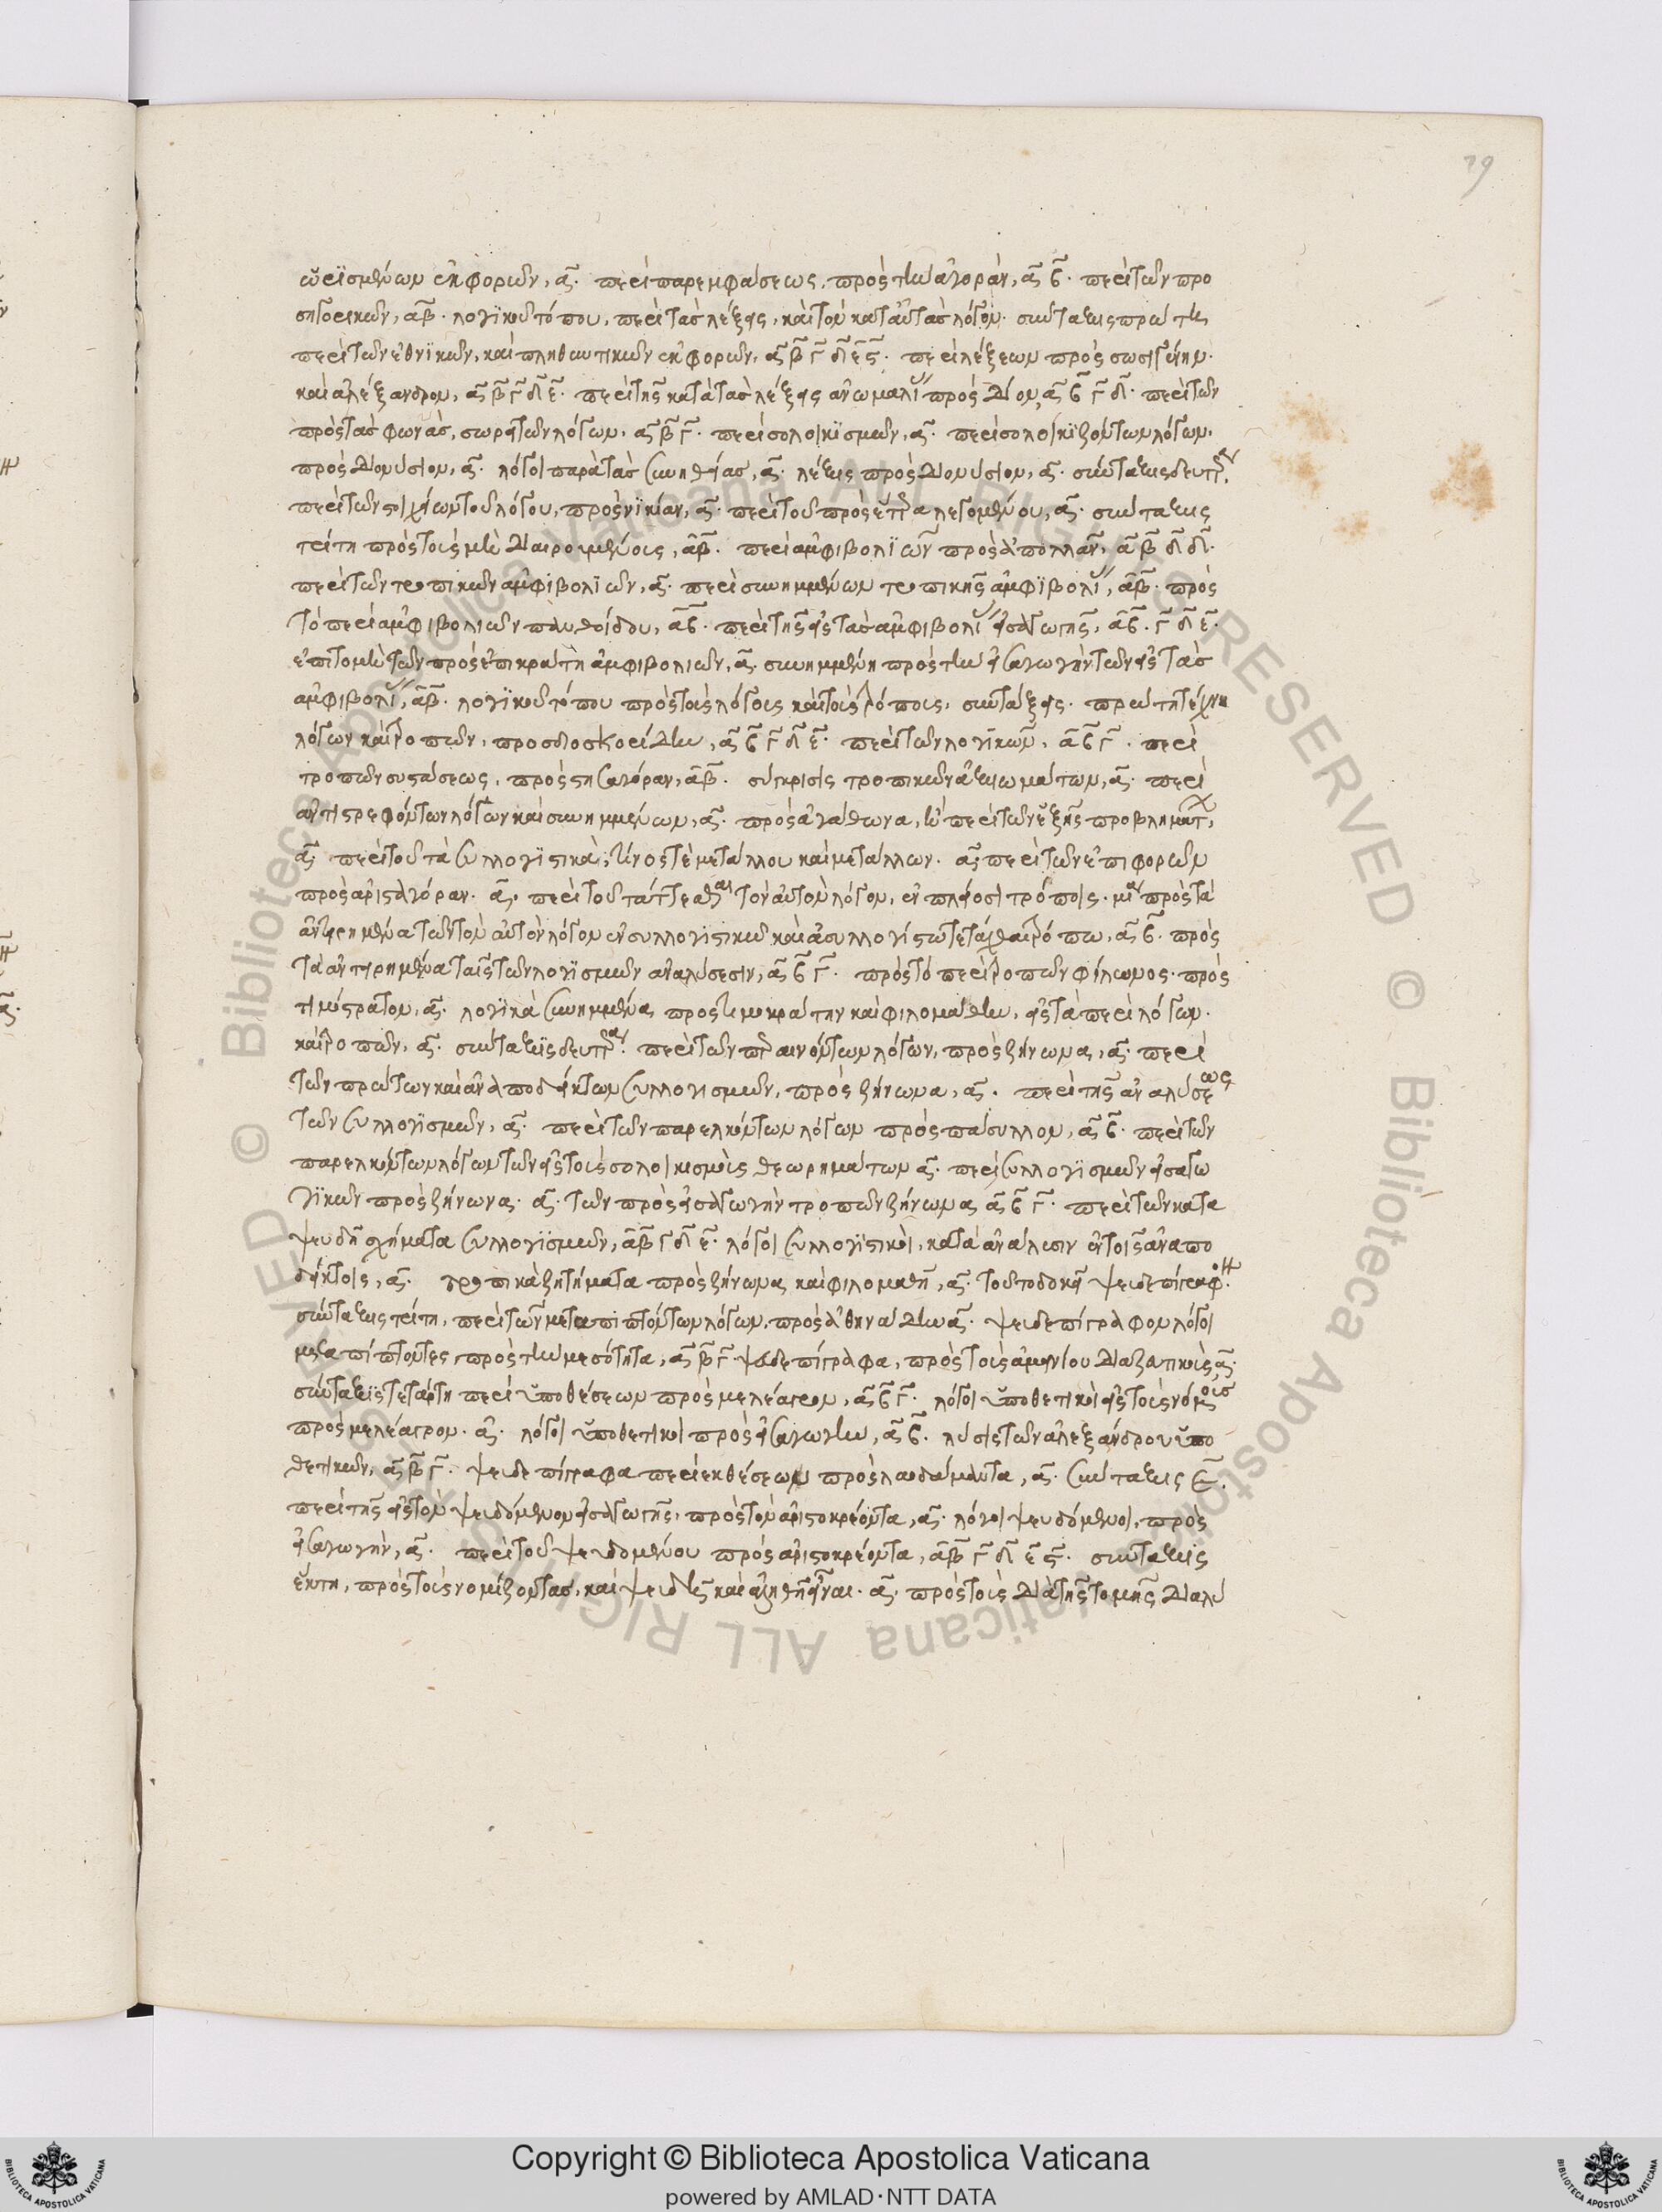 79
ὡρϊσμένων ἐκφορῶν, α̅. περὶ παρεμφάσεως, πρὸς τὴν ἀγορὰν, α̅ β̅. περὶ τῶν προ
σηγορικῶν, α̅β̅. λογϊκοῦ τόπου, περὶ τὰς λέξεις, καὶ τὸν κατ αὐτὰς λόγον. σύνταξις πρώτη,
περὶ τῶν ἑθνϊκῶν, καὶ πληθωτικῶν ἐκφορῶν, α̅ β̅ γ̅ δ̅ ε̅ ς̅. περὶ λέξεων πρὸς σωσιγένην.
καὶ ἀλέξανδρον, α̅ β̅ γ̅ δ̅ ε̅. περὶ τῆς κατὰ τὰς λέξεις ἀνωμαλί πρὸς δίονα, α̅ β̅ γ̅ δ̅. περὶ τῶν
πρὸς τὰς φωνὰς, σωρειτῶν λόγων, α̅ β̅ γ̅. περὶ σολοικϊσμῶν, α̅. περὶ σολοικϊζόντων λόγων.
πρὸς διονύσιον, α̅. λόγοι παρὰ τὰς συνηθείας, α̅. λέξις πρὸς διονύσιον, α̅. σύνταξις δευτ
περὶ τῶν στοιχείων τοῦ λόγου, πρὸς νϊκίαν, α̅. περὶ τοῦ πρὸς ἕτερα λεγομένου, α̅. σύνταξις
τρίτη πρὸς τοὺς μὴ διαιρουμένους, α̅β̅. περὶ ἀμφιβολϊῶν πρὸς ἀπολλᾶν, α̅ β̅ δ̅ δ̅.
περὶ τῶν τροπικῶν ἀμφϊβολϊῶν, α̅. περὶ συνημμένων τροπικῆς ἀμφϊβολί, α̅β̅. πρὸς
τὸ περὶ ἀμφιβολιῶν πανθοίδου, α̅ β̅. περὶ τῆς εἰς τὰς ἀμφιβολί εἰσαγωγῆς, α̅ β̅. γ̅ δ̅ ε̅.
ἐπιτομὴ τῶν πρὸς ἐπικράτη ἀμφιβολιῶν, α̅. συνημμένη πρὸς τὴν εἰσαγωγὴν τῶν εἰς τὰς
ἀμφιβολί, α̅β̅. λογϊκοῦ τόπου πρὸς τοὺς λόγους καὶ τοὺς τρόπους, συντάξεις. πρώτη τέχνη
λόγων καὶ τροπῶν, πρὸς διοσκορίδην, α̅ β̅ γ̅ δ̅ ε̅. περὶ τῶν λογϊκῶν, α̅ β̅ γ̅. περὶ
τροπῶν συστάσεως, πρὸς στησαγόραν, α̅β̅. σύγκρισις τροπικῶν ἀξιωμάτων, α̅. περὶ
ἀντιστρεφόντων λόγων καὶ συνημμένων, α̅. πρὸς ἀγάθωνα, ἢ περὶ τῶν ἑξῆς προβλημάτ,
α̅ περὶ τοῦ τὰ συλλογϊστικὰ, τίνος τὲ μετάλλου καὶ μετάλλων. α̅ περὶ τῶν ἐπιφορῶν
πρὸς ἀρισταγόραν. α̅. περὶ τοῦ τάττεσθαι τὸν αὐτὸν λόγον, ἐν πλείοσι τρόποις. μίαν πρὸς τὰ
ἀντειρημένα τῶν τὸν αὐτὸν λόγον ἐν συλλογιστικῶ καὶ ἀσυλλογίστω τετάχθαι τρόπω, α̅ β̅. πρὸς
τὰ ἀντειρημένα ταῖς τῶν λογϊσμῶν ἀναλύσεσιν, α̅ β̅ γ̅. πρὸς τὸ περὶ τροπῶν φίλωνος. πρὸς
τιμόστρατον, α̅. λογϊκὰ συνημμένα, πρὸς τιμοκράτην καὶ φιλομάθην, εἰς τὰ περὶ λόγων.
καὶ τροπῶν, α̅. σύνταξις δευτέρα. περὶ τῶν περαινόντων λόγων, πρὸς ζήνωνα, α̅. περὶ
τῶν πρώτων καὶ ἀναποδείκτων συλλογισμῶν, πρὸς ζήνωνα, α̅. περὶ τῆς ἀναλύσεως
τῶν συλλογϊσμῶν, α̅. περὶ τῶν παρελκόντων λόγων πρὸς πάσυλλον, α̅ β̅. περὶ τῶν
παρελκόντων λόγων τῶν εἰς τοὺς σολοικισμοὺς θεωρημάτων α̅. περὶ συλλογϊσμῶν εἰσαγω
γϊκῶν πρὸς ζήνωνα. α̅. τῶν πρὸς εἰσαγωγὴν τροπῶν ζήνωνα α̅ β̅ γ̅. περὶ τῶν κατα
ψευδῆ σχήματα συλλογϊσμῶν, α̅β̅ γ̅ δ̅ ε̅. λόγοι συλλογϊστικοὶ, κατὰ ἀνάλυσιν ἐν τοῖς ἀναπο
δείκτοις, α̅. τροπικὰ ζητήματα πρὸς ζήνωνα, καὶ φιλομαθῆ, α̅. τοῦτο δοκεῖ ψευδεπίγραφ.
σύνταξις τρίτη, περὶ τῶν μεταπιπτόντων λόγων, πρὸς ἀθηνάδην α̅. ψευδεπίγραφον λόγοι
μεταπίπτοντες, πρὸς τὴν μεσότητα, α̅ β̅ γ̅. ψευδεπίγραφα, πρὸς τοὺς ἀμεινίου διαζευτικοὺς, α̅.
σύνταξις τετάρτη περὶ ὑποθέσεων πρὸς μελέαγρον, α̅ β̅ γ̅. λόγοι ὑποθετικοὶ εἰς τοὺς νόμους
πρὸς μελέαγρον. α̅. λόγοι ὑποθετικοὶ πρὸς εἰσαγωγὴν, α̅ β̅. λύσις τῶν ἀλεξάνδρου ὑπο
θετικῶν, α̅ β̅ γ̅. ψευδεπίγραφα περὶ ἐκθέσεων πρὸς λαοδάμαντα, α̅. σύνταξις ε̅.
περὶ τῆς εἰς τὸν ψευδόμενον εἰσαγωγῆς, πρὸς τὸν ἀριστοκρέοντα, α̅. λόγοι ψευδόμενοι, πρὸς
εἰσαγωγὴν, α̅. περὶ τοῦ ψευδομένου πρὸς ἀριστοκρέοντα, α̅β̅ γ̅ δ̅ ε̅ ς̅. σύνταξις
ἕκτη, πρὸς τοὺς νομίζοντας, καὶ ψευδῆ καὶ ἀληθῆ εἶναι. α̅. πρὸς τοὺς διὰ τῆς τομῆς διαλύ
Copyright © Biblioteca Apostolica Vaticana
powered by AMLAD·NTT DATA